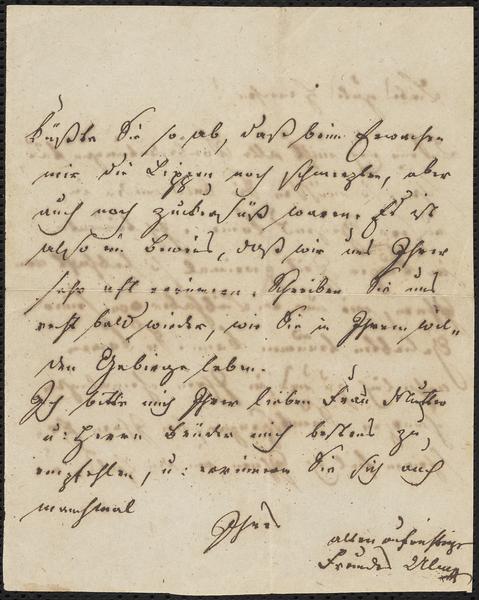 küßte Sie so ab, daß beim Erwachen
mir die Lippen noch schmerzten, aber
auch noch zuckersüß waren. Es ist
also ein Beweis, daß wir uns Ihrer
sehr oft erinnern. Schreiben Sie uns
recht bald wieder, wie Sie in Ihrem wil-
den Gebirge leben.
Ich bitte mich Ihrer lieben Frau Mutter
u: Herrn Bruder mich bestens zu
empfehlen, u: erinnern Sie sich auch
manchmal
Ihres
alten aufrichtigen
Freundes